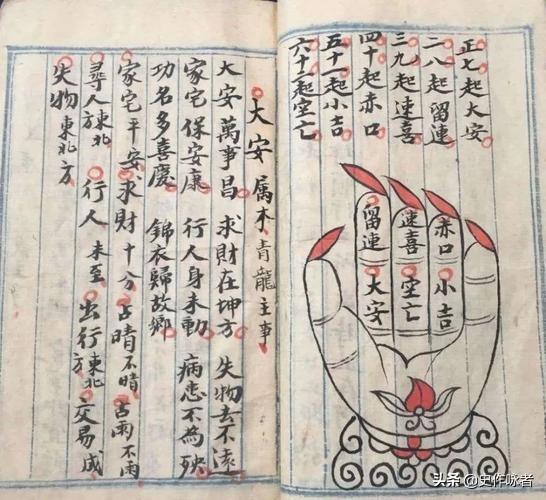 正七起大安
二八起留連
三九起速喜
四十起赤口
五十一起小吉
六十二起空亡
赤口 速喜 留連
小吉 空亡 大安
大安 属木 青龍主事
大安萬事昌 求財在坤方 失物去不遠
家宅保安康 行人身未動 病患不為殃
功名多喜慶 錦衣歸故鄉
家宅平安 求財十分 占晴不晴 占雨不雨
尋人東北方 行人未至 出行東北方 交易成
失物東北方
头条 @史作咏者